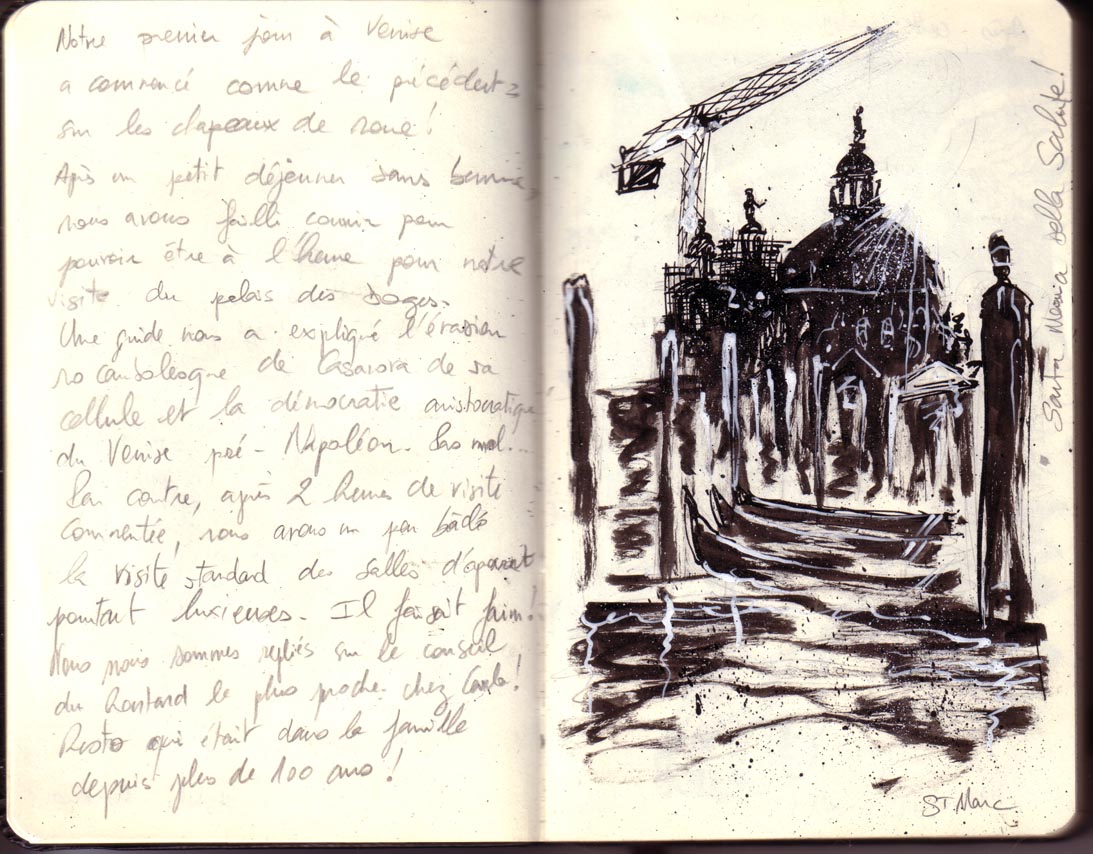 Notre premier jour à Venise
a commencé comme le précédent :
sur les chapeaux de roue !
Après un petit déjeuner sans beurre,
nous avons failli courir pour
pouvoir être à l'heure pour notre
visite du palais des Doges.
Une guide nous a expliqué l'évasion
rocambolesque de Casanova de sa
cellule et la démocratie aristocratique
du Venise pré-Napoléon. Pas mal...
Par contre, après 2 heures de visite
commentée, nous avons un peu bâclé
la visite standard des salles d'apparat
pourtant luxueuses. Il faisait faim !
Nous nous sommes repliés sur le conseil
du Routard le plus proche. chez Carla !
Resto qui était dans la famille
depuis plus de 100 ans !
Santa Maria della Salute !
ST Marc